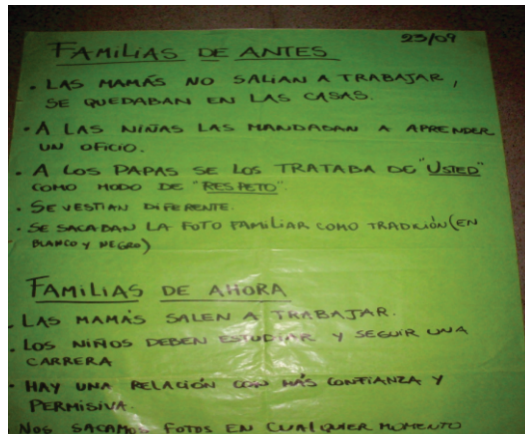 23/09
FAMILIAS DE ANTES
• LAS MAMÁS NO SALIAN A TRABAJAR,
SE QUEDABAN EN LAS CASAS.
• A LAS NIÑAS LAS MANDABAN A APRENDER
UN OFICIO.
• A LOS PAPAS SE LOS TRATABA DE "USTED"
COMO MODO DE "RESPETO".
• SE VESTIAN DIFERENTE.
• SE SACABAN LA FOTO FAMILIAR COMO TRADICIÓN (EN
BLANCO Y NEGRO)
FAMILIAS DE AHORA
• LAS MAMÁS SALEN A TRABAJAR.
• LOS NIÑOS DEBEN ESTUDIAR Y SEGUIR UNA
CARRERA
• HAY UNA RELACIÓN CON MÁS CONFIANZA Y
PERMISIVA.
NOS SACAMOS FOTOS EN CUALQUIER MOMENTO